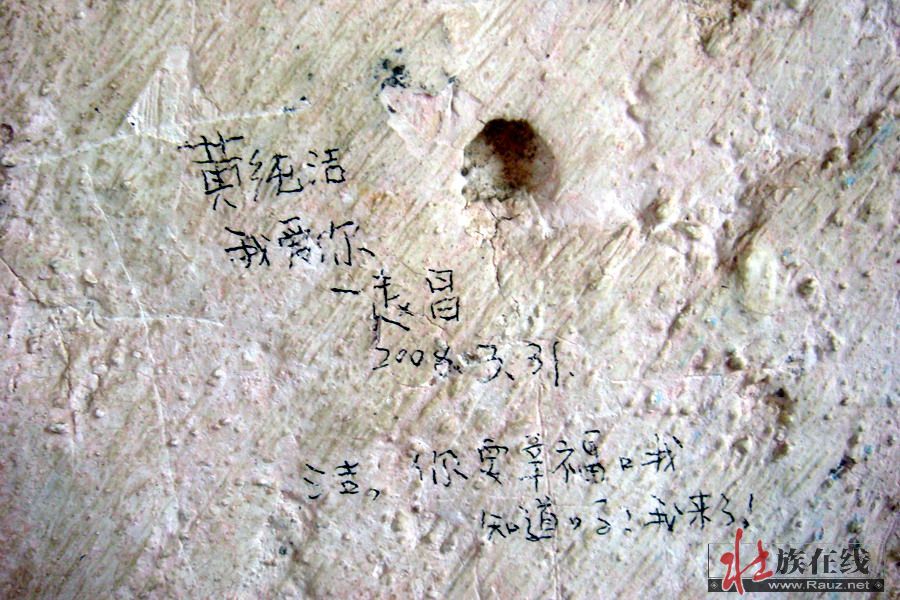 黄纯洁
我爱你
一赵昌
2008.3.31.
洁。你要幸福。我
知道。了!我来了!
壮族在线
www.Rauz.net